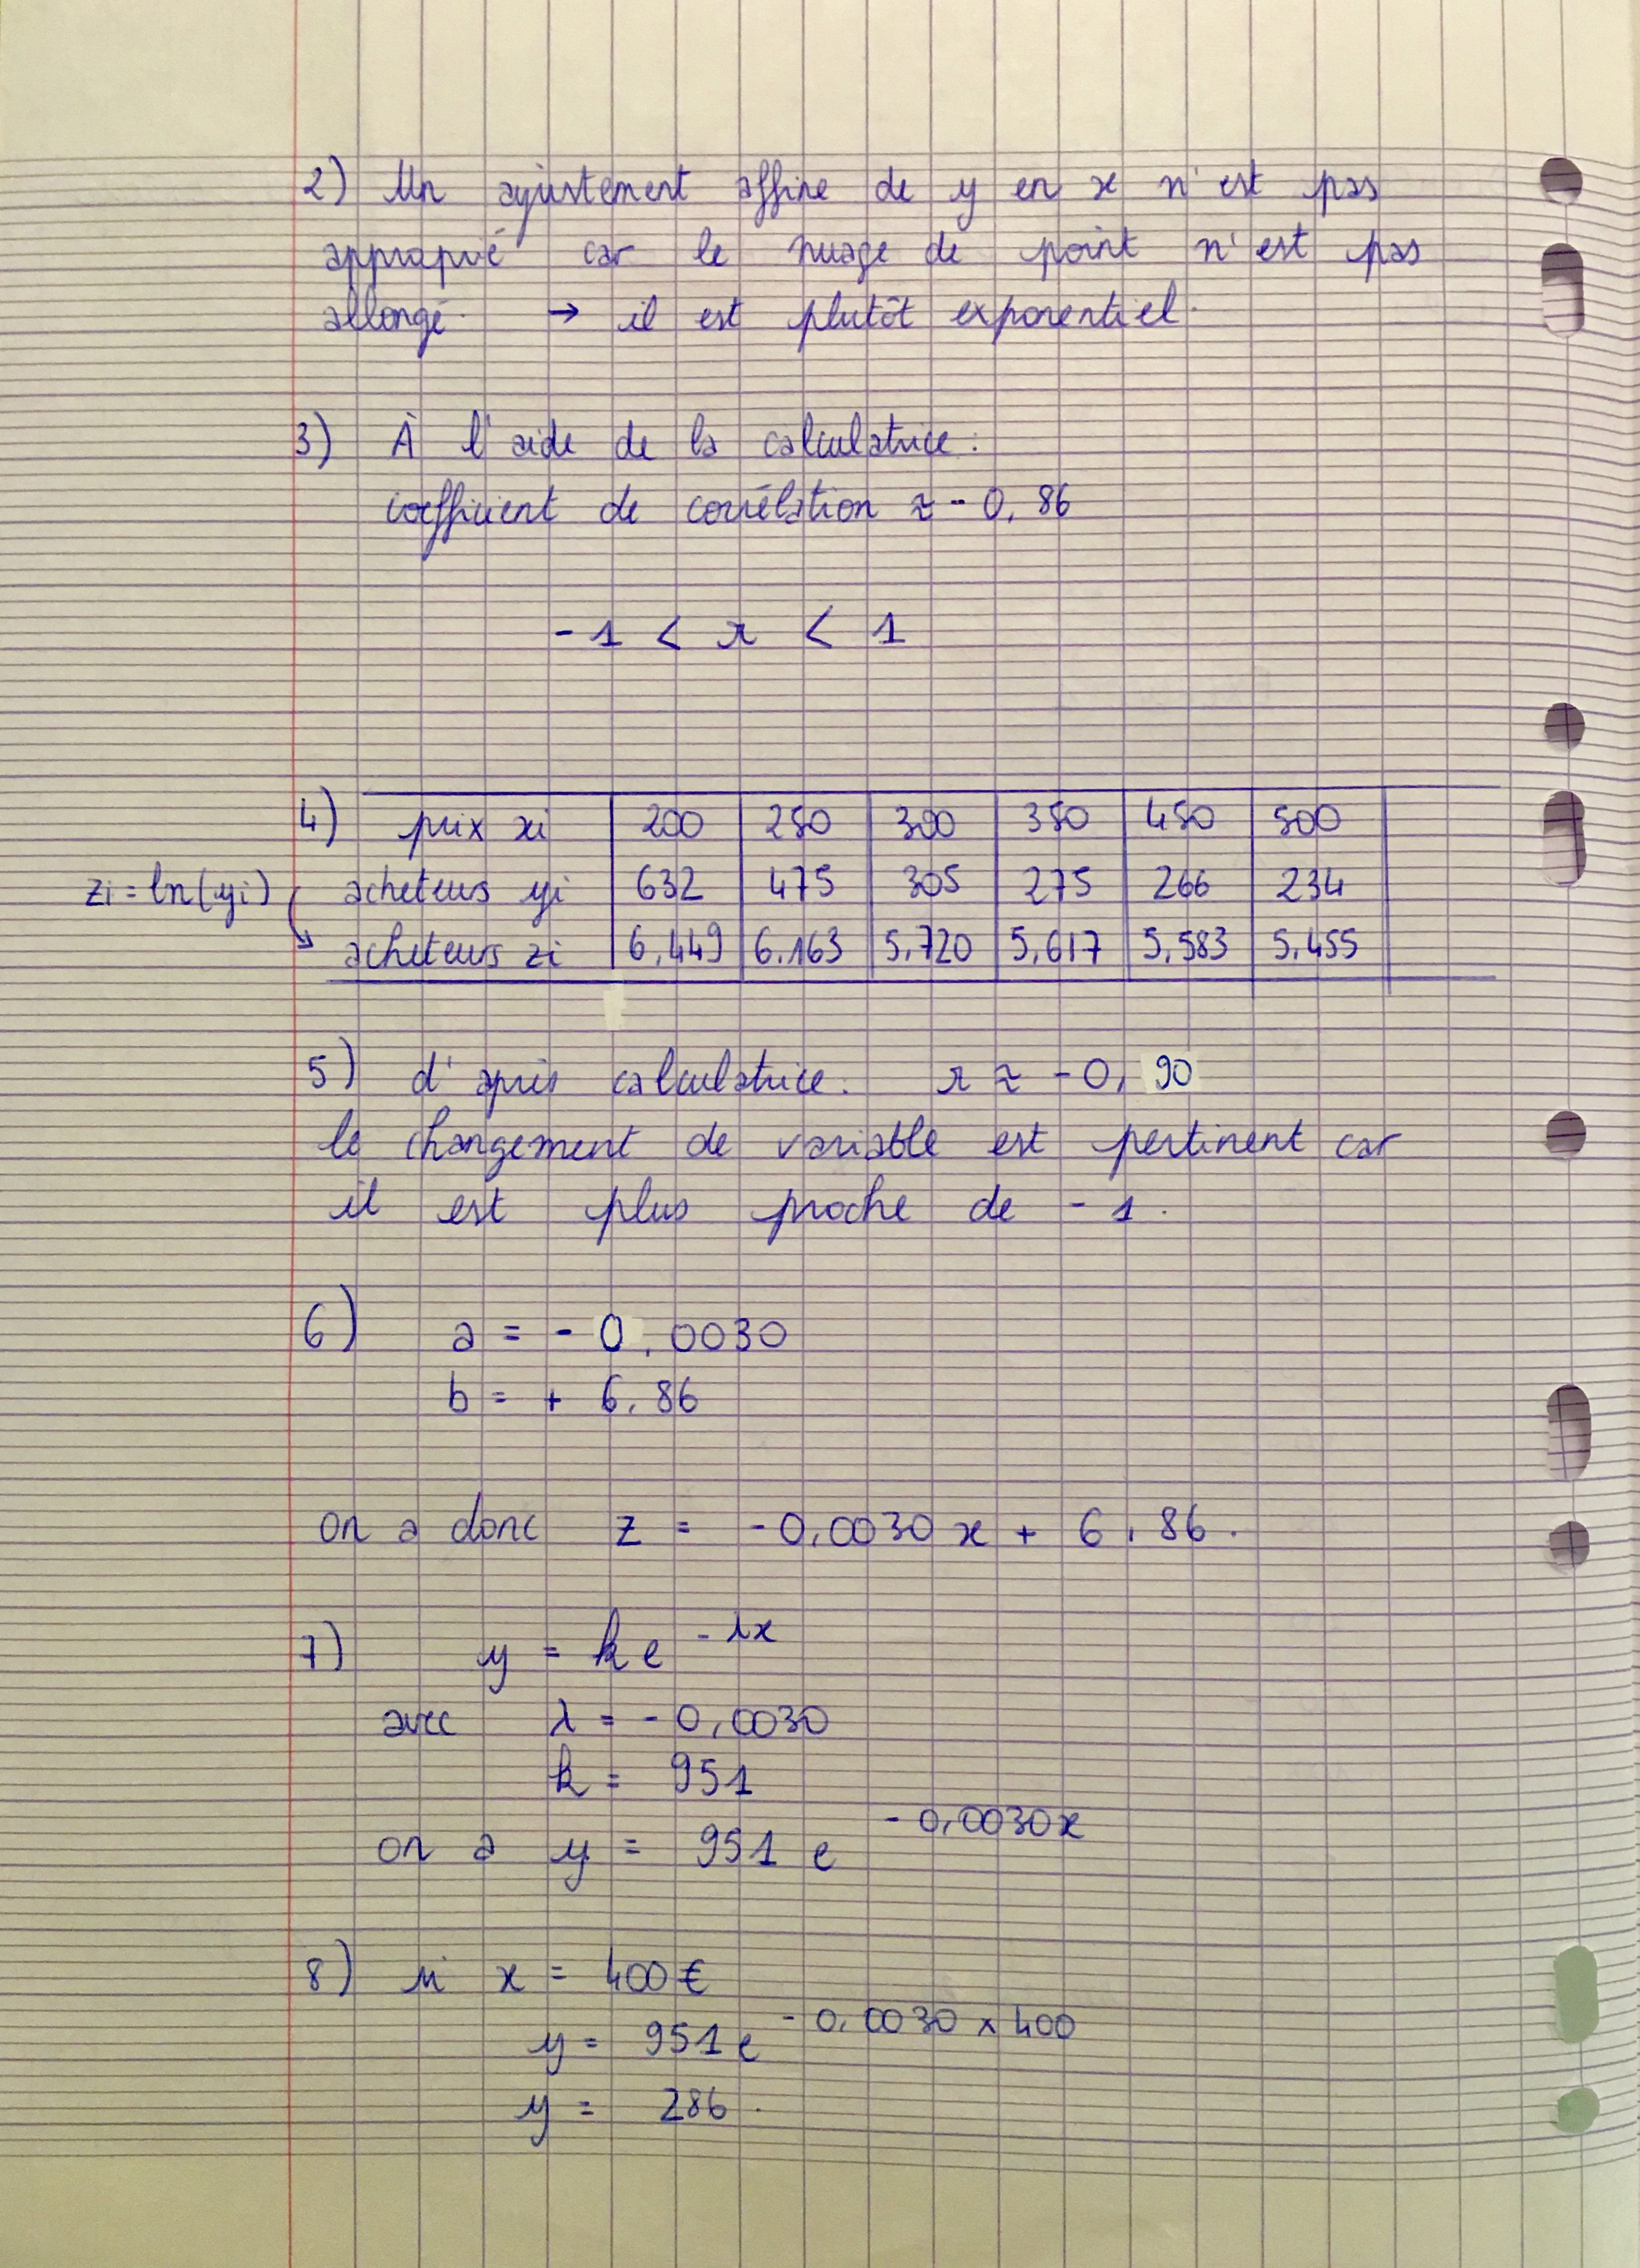 2) Un ajustement affine de y en x n'est pas
approprié car le nuage de point n'est pas
allongé. → il est plutôt exponentiel.
3) À l'aide de la calculatrice :
coefficient de corrélation ≈ - 0,86
-1 < r < 1
4) prix xi 200 250 300 350 450 500
zi = ln(yi) acheteurs yi 632 475 305 275 266 234
acheteurs zi 6,449 6,163 5,720 5,617 5,583 5,455
5) d'après calculatrice. r ≈ -0,90
le changement de variable est pertinent car
il est plus proche de -1.
6) a = - 0,0030
b = + 6,86
on a donc z = -0,0030 x + 6,86.
7) y = k e^-λx
avec λ = - 0,0030
k = 951
on a y = 951 e^-0,0030x
8) si x = 400 €
y = 951 e^-0,0030 x 400
y = 286.